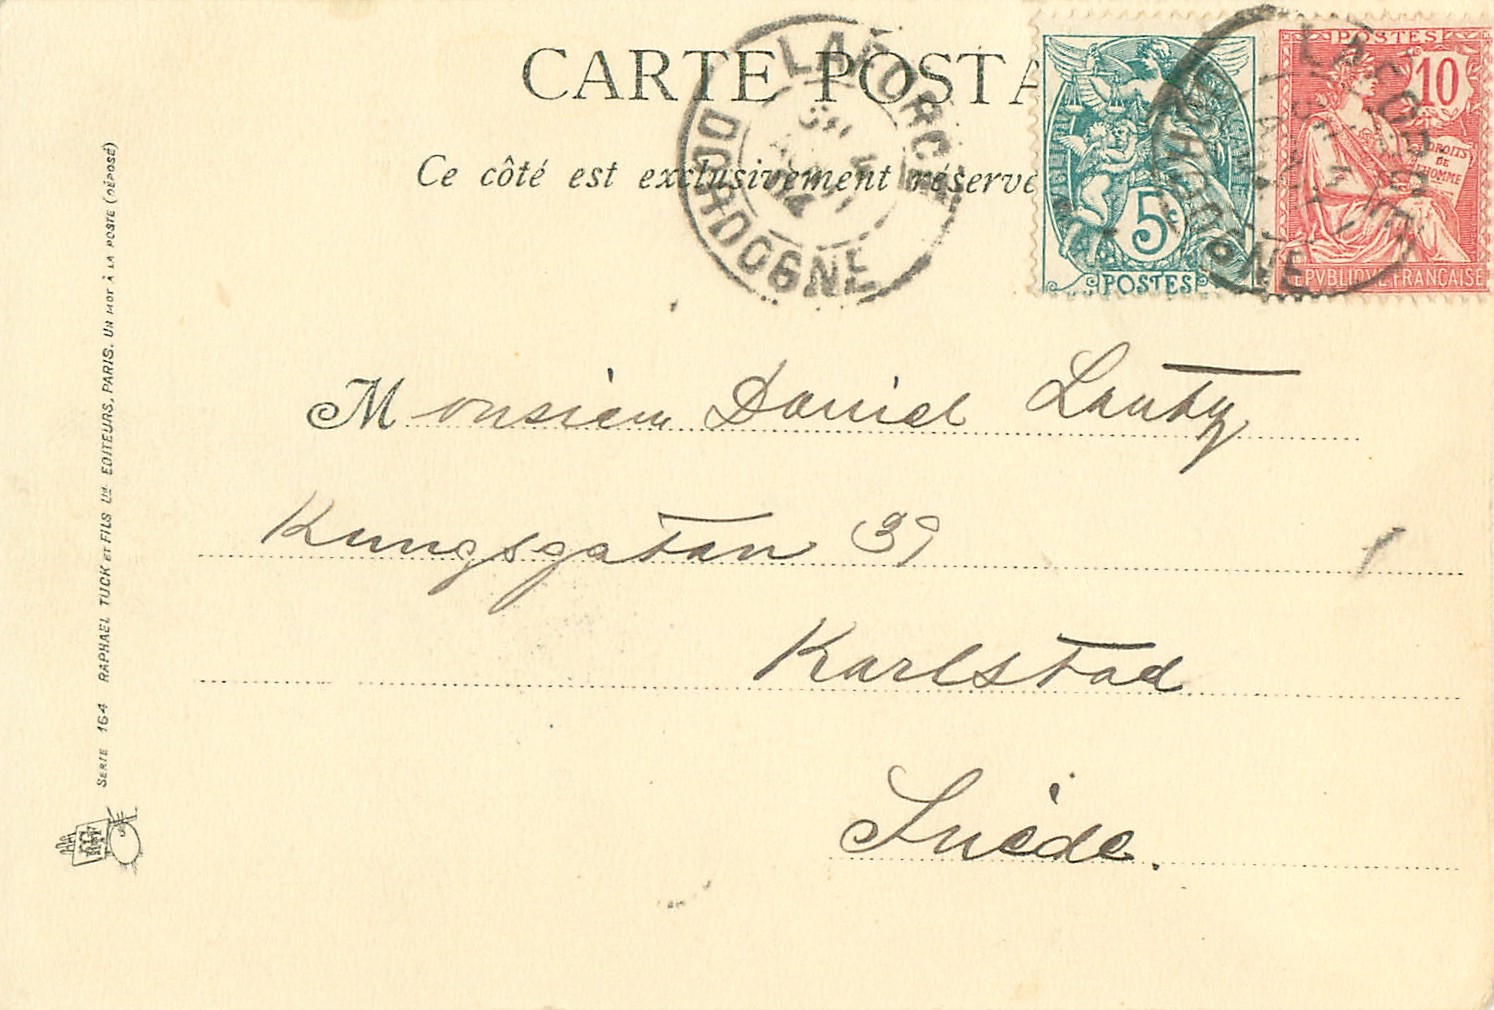 CARTE POSTA
Ce côté est exclusivement réservé
LAFORCE
DORDOGNE
LAFORCE
DORDOGNE
RÉPUBLIQUE FRANÇAISE
5c
POSTES
POSTES
10
DROITS
DE
L'HOMME
REPVBLIQVE FRANÇAISE
Monsieur Daniel Lauty
Kungsgatan 39
Karlstad
Suède.
SERIE 164 RAPHAEL TUCK ET FILS Ltd EDITEURS, PARIS. UN MOT À LA POSTE (DÉPOSÉ)